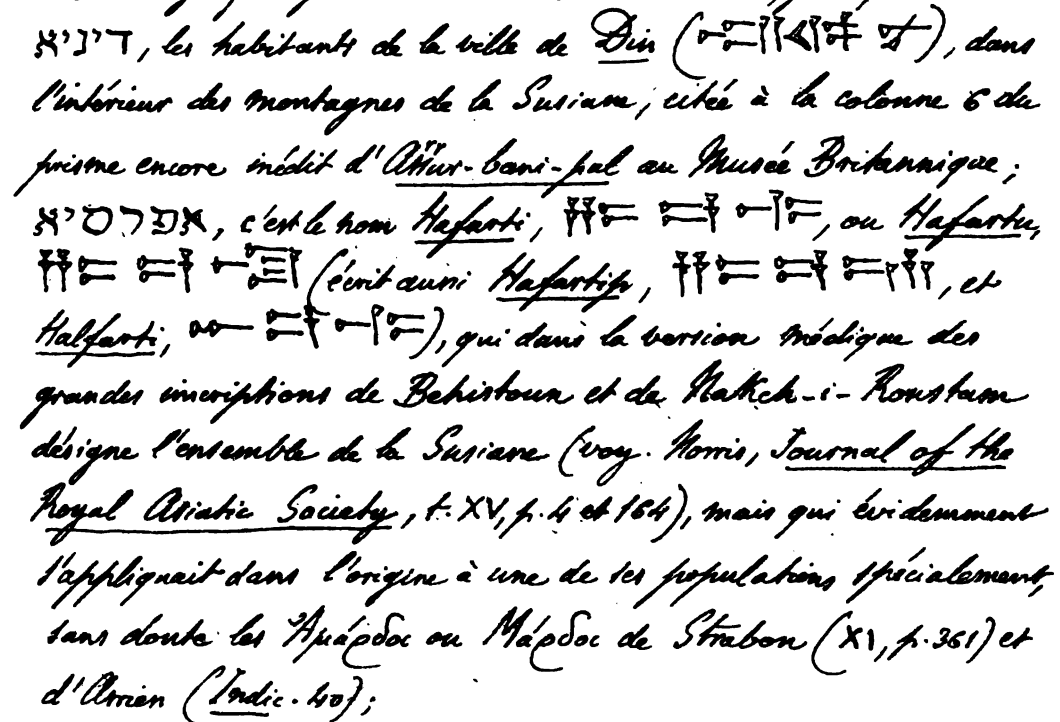 דיניא, les habitants de la ville de Din (), dans
l'intérieur des montagnes de la Susiane, citée à la colonne 6 du
prisme encore inédit d'Aššur-bani-pal au Musée Britannique ;
אפרסיא, c'est le nom Hafarti, , ou Hafartu,
(écrit aussi Hafartip, , et
Halfarti, ), qui dans la version médique des
grandes inscriptions de Behistoun et de Nakch-i-Roustam
désigne l'ensemble de la Susiane (voy. Norris, Journal of the
Royal Asiatic Society, t. XV, p. 4 et 164), mais qui évidemment
s'appliquait dans l'origine à une de ses populations spécialement,
sans doute les Ἀμάρδοι ou Μάρδοι de Strabon (XI, p. 361) et
d'Arrien (Indic. 40) ;